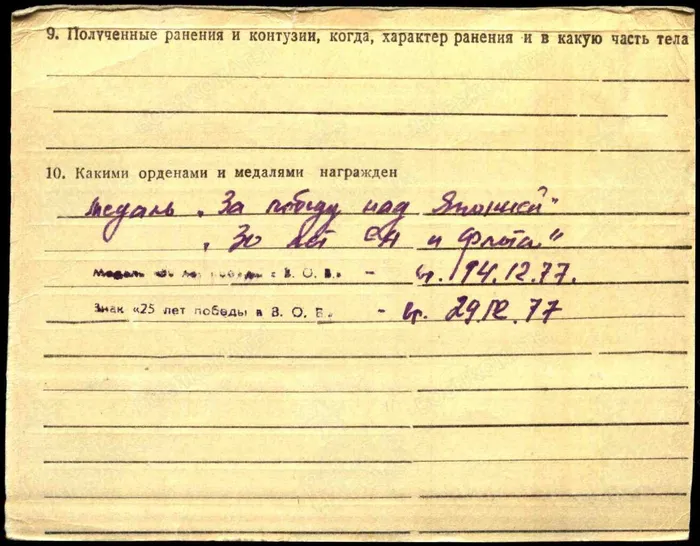 9. Полученные ранения и контузии, когда, характер ранения и в какую часть тела
10. Какими орденами и медалями награжден
медаль „За победу над Японией"
„30 лет СА и Флота"
Медаль лет победы в В. О. В.» - вр. 14.12.77.
Знак «25 лет победы в В. О. В.» - вр. 29.12.77